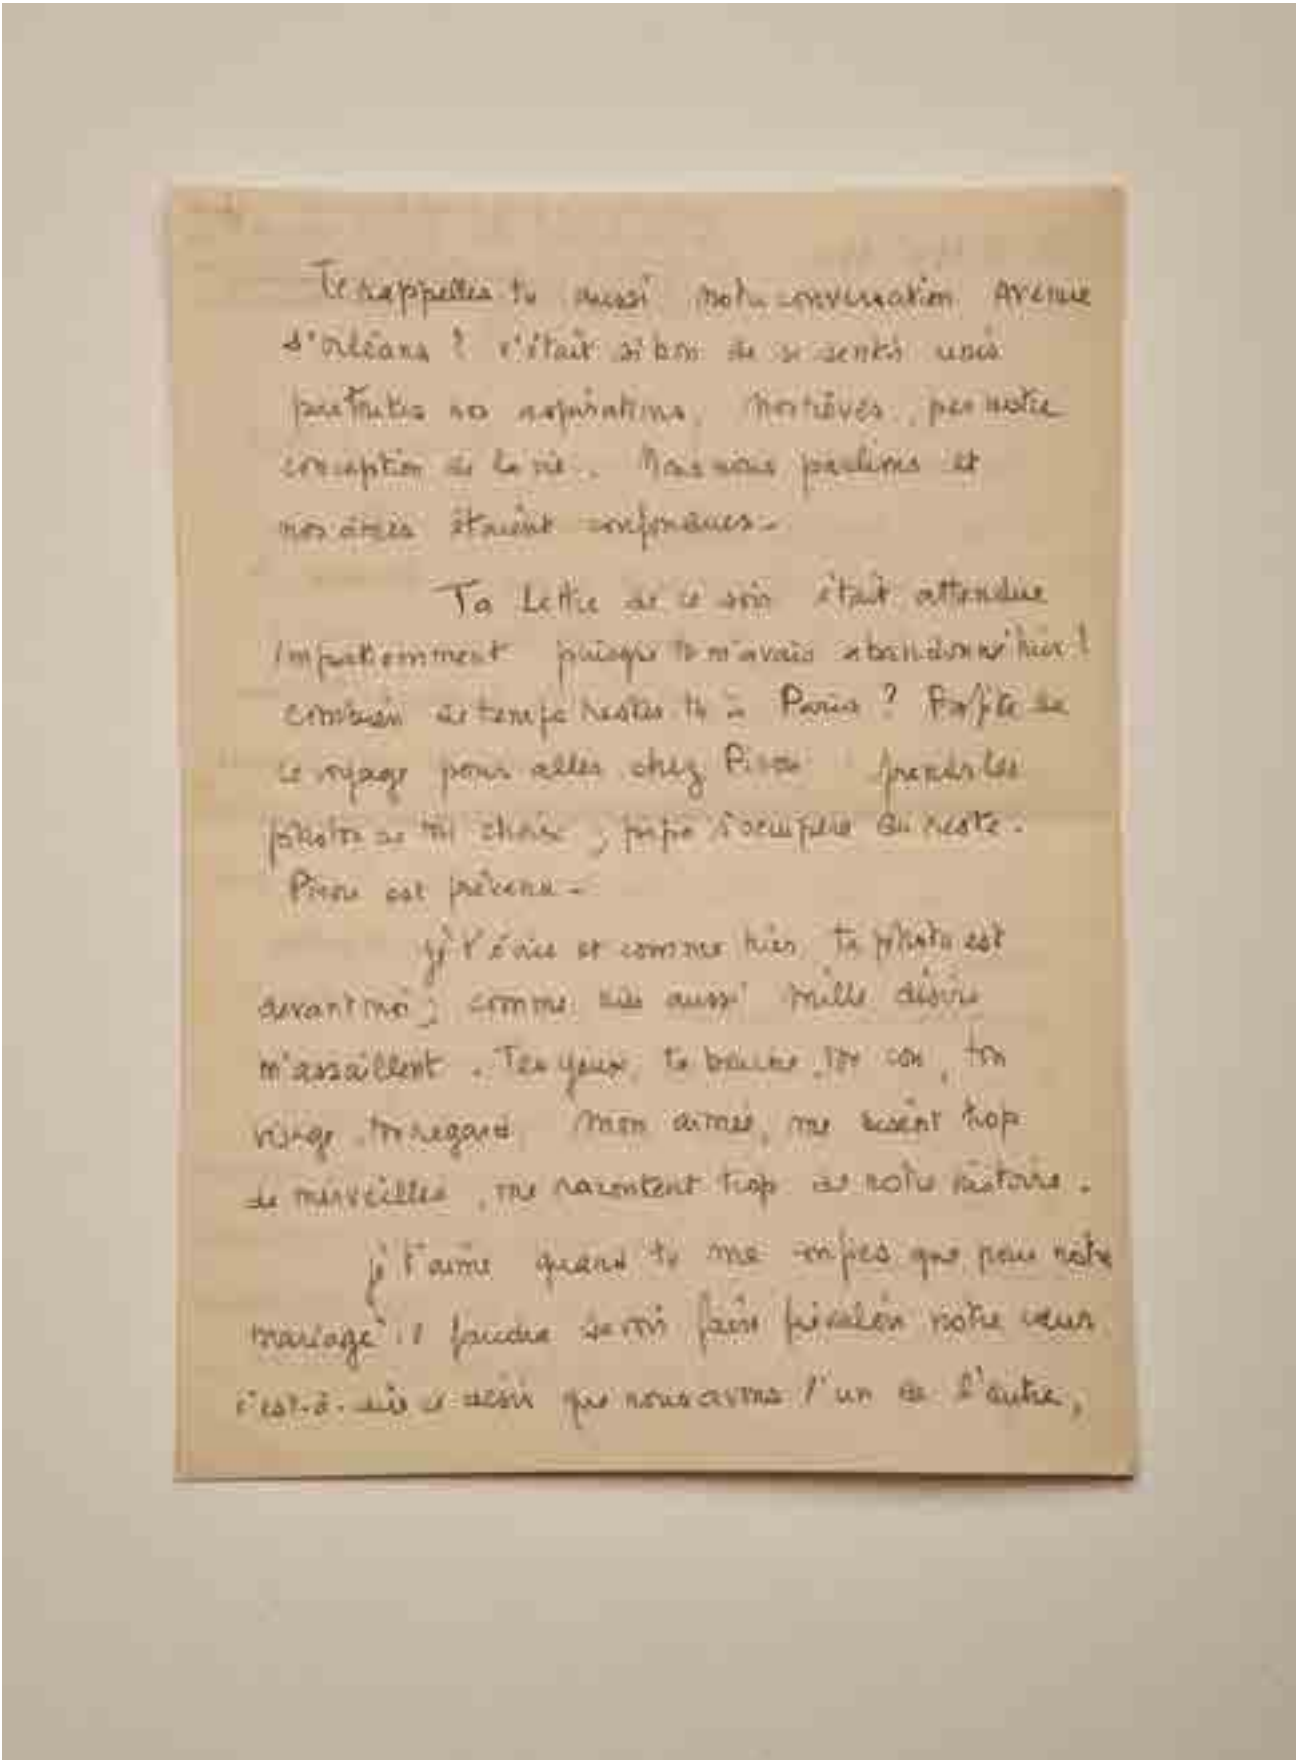 Te rappelles tu aussi notre conversation Avenue
d'Orléans ? c'était si bon de se sentir unis
par toutes nos aspirations, nos rêves, par notre
conception de la vie. Nous nous parlions et
nos âmes étaient confondues.
Ta lettre de ce soir était attendue
impatiemment puisque tu m'avais abandonné hier !
combien de temps restes tu à Paris ? Profite de
ce voyage pour aller chez Pirou prends les
photos de ton choix ; papa s'occupera du reste.
Pirou est prévenu.
je t'écris et comme hier, ta photo est
devant moi ; comme hier aussi mille désirs
m'assaillent. Tes yeux, ta bouche, ton cou, ton
visage, ton regard, mon aimée, me disent trop
de merveilles, me racontent trop de notre histoire.
je t'aime quand tu me dis que pour notre
mariage il faudra savoir faire prévaloir notre cœur
c'est-à-dire ce désir que nous avons l'un de l'autre,